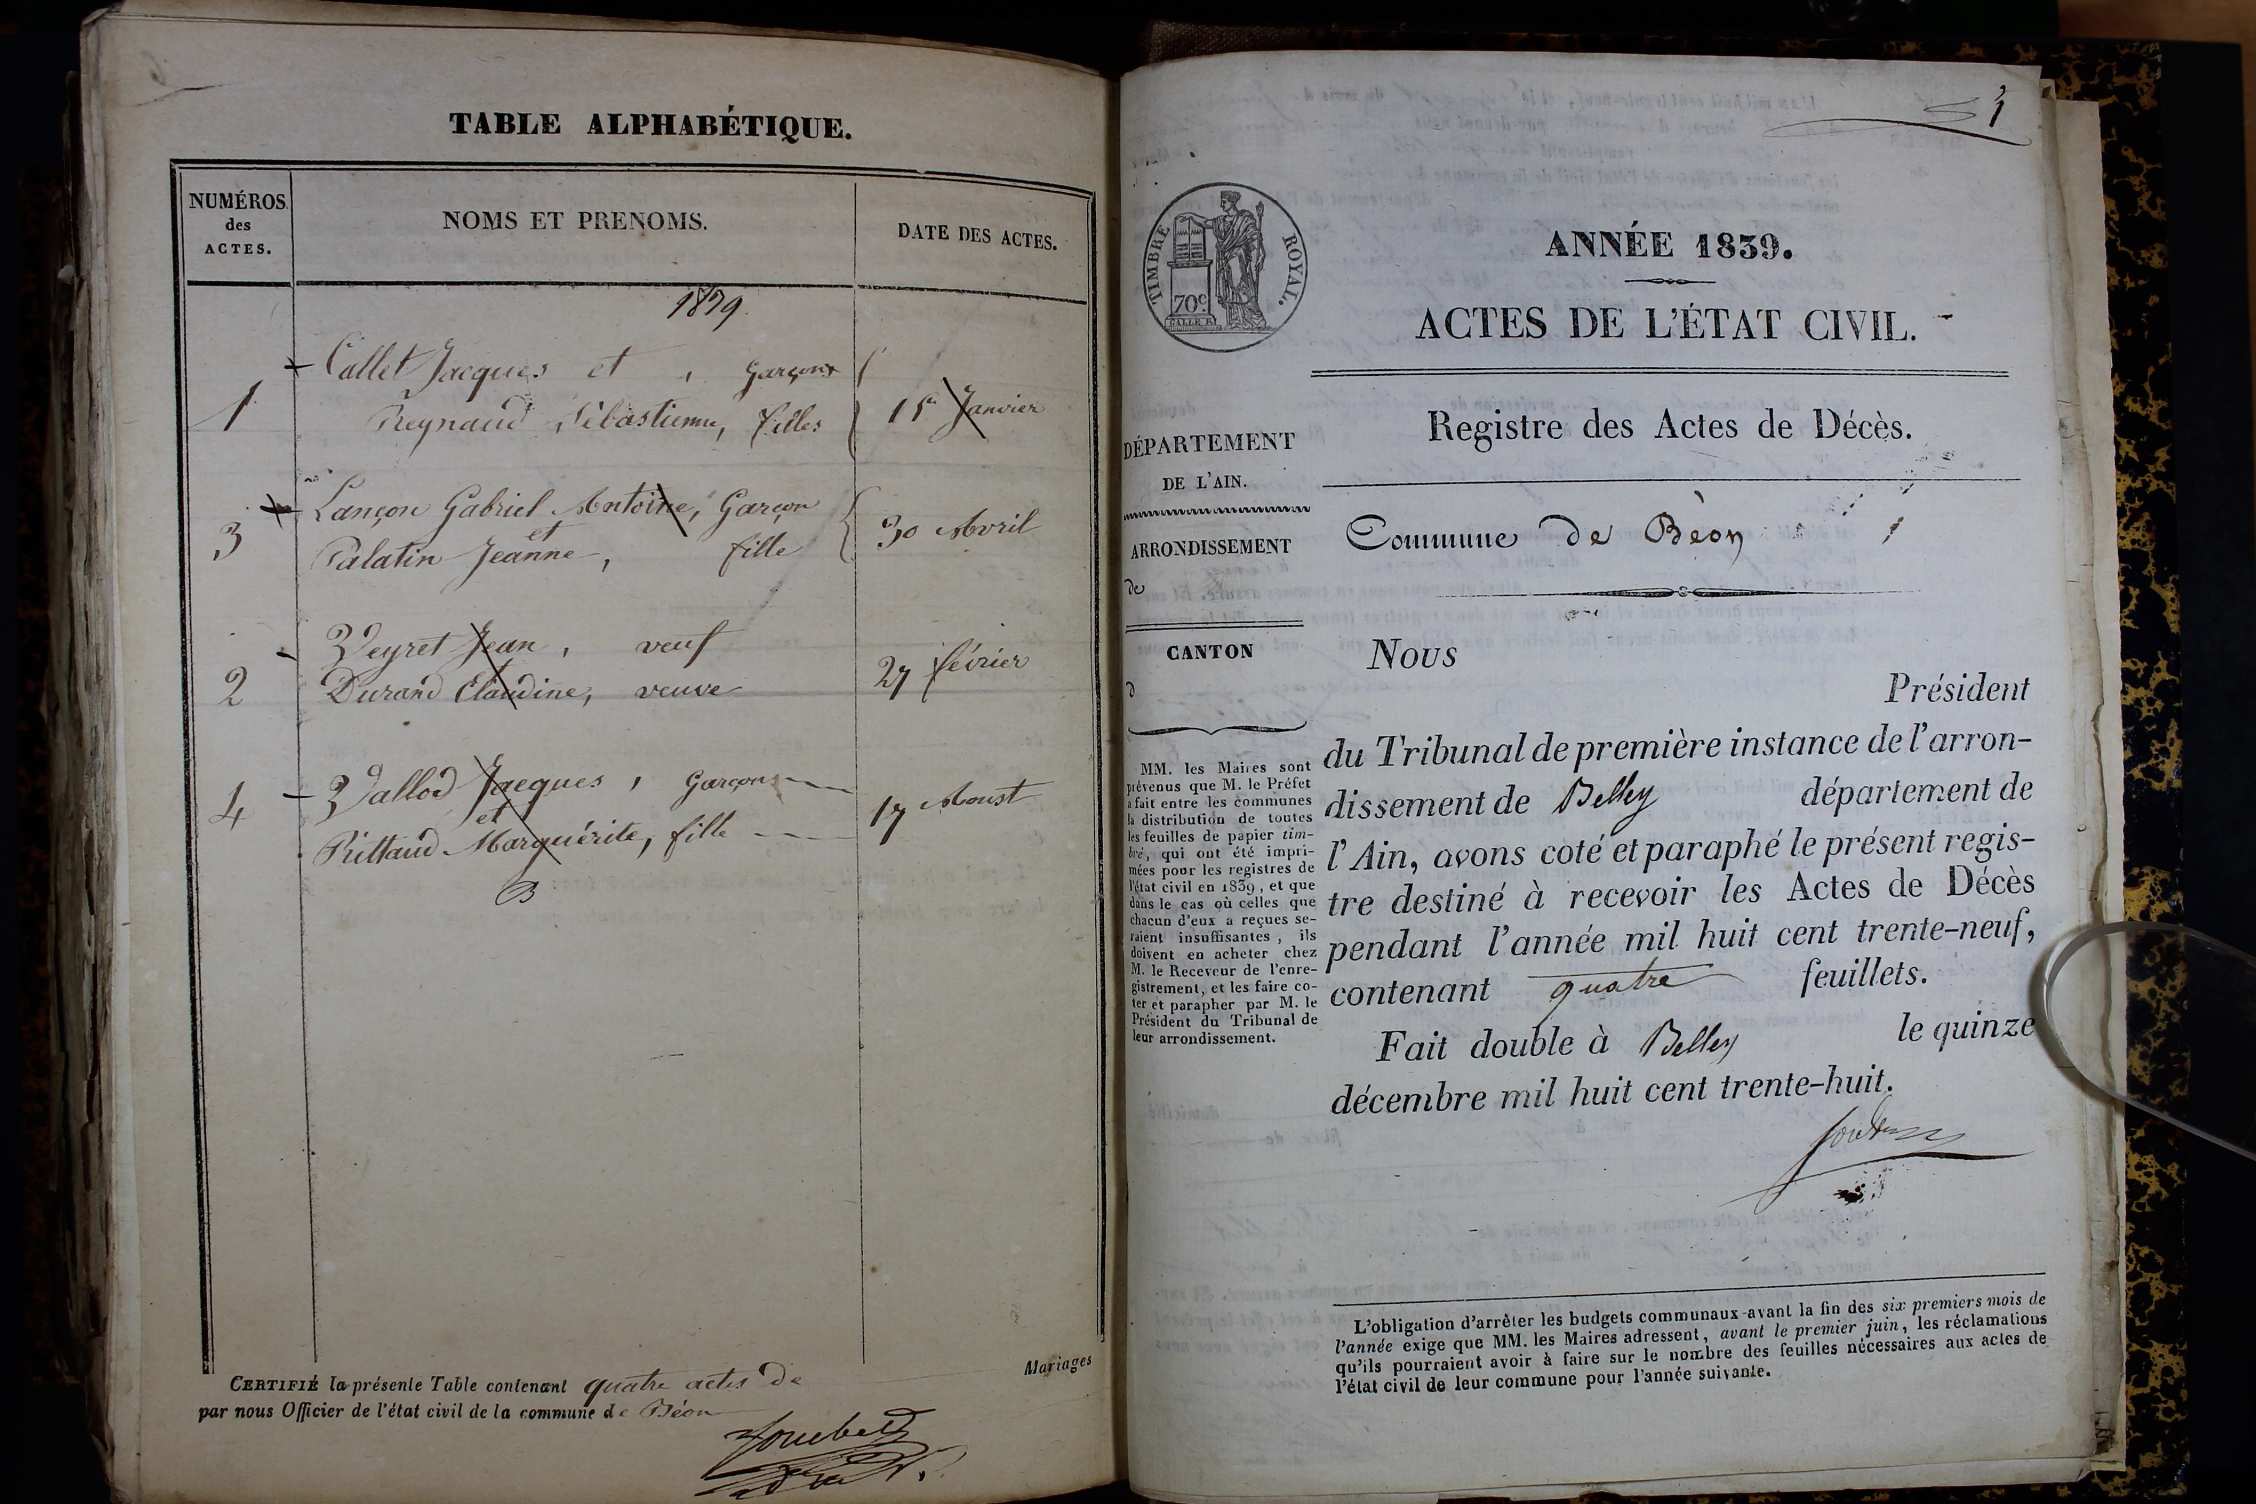 TABLE ALPHABÉTIQUE.
NUMÉROS
des
ACTES.
NOMS ET PRENOMS.
DATE DES ACTES.
1839
Callet Jacques et , Garçons
1
Reynaud Sébastienne, filles
15 Janvier
Lançon Gabriel Antoine, Garçon
3
et
30 Avril
Palatin Jeanne, fille
Veyret Jean, veuf
et
2
27 février
Durand Claudine, veuve
4
Vallod Jacques, Garçons
et
17 Aoust
Rittaud Marguérite, fille
CERTIFIÉ la présente Table contenant quatre actes de Mariages
par nous Officier de l'état civil de la commune de Béon
1
TIMBRE ROYAL.
70c
ANNÉE 1839.
ACTES DE L'ÉTAT CIVIL.
Registre des Actes de Décès.
Commune de Bèon
DÉPARTEMENT
DE L'AIN.
ARRONDISSEMENT
de
CANTON
d
MM. les Maires sont
prévenus que M. le Préfet
a fait entre les communes
la distribution de toutes
les feuilles de papier tim-
bré, qui ont été impri-
mées pour les registres de
l'état civil en 1839, et que
dans le cas où celles que
chacun d'eux a reçues se-
raient insuffisantes, ils
doivent en acheter chez
M. le Receveur de l'enre-
gistrement, et les faire co-
ter et parapher par M. le
Président du Tribunal de
leur arrondissement.
Nous
Président
du Tribunal de première instance de l'arron-
dissement de Belley département de
l'Ain, avons coté et paraphé le présent regis-
tre destiné à recevoir les Actes de Décès
pendant l'année mil huit cent trente-neuf,
contenant quatre feuillets.
Fait double à Belley le quinze
décembre mil huit cent trente-huit.
L'obligation d'arrêter les budgets communaux avant la fin des six premiers mois de
l'année exige que MM. les Maires adressent, avant le premier juin, les réclamations
qu'ils pourraient avoir à faire sur le nombre des feuilles nécessaires aux actes de
l'état civil de leur commune pour l'année suivante.